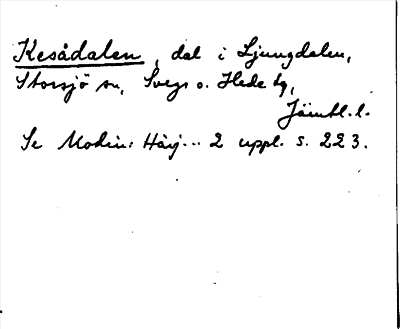 Kesådalen, dal i Ljungdalen,
Storsjö sn, Svegs o. Hede tg,
Jämtl. l.
Se Modin: Härj... 2 uppl. s. 223.